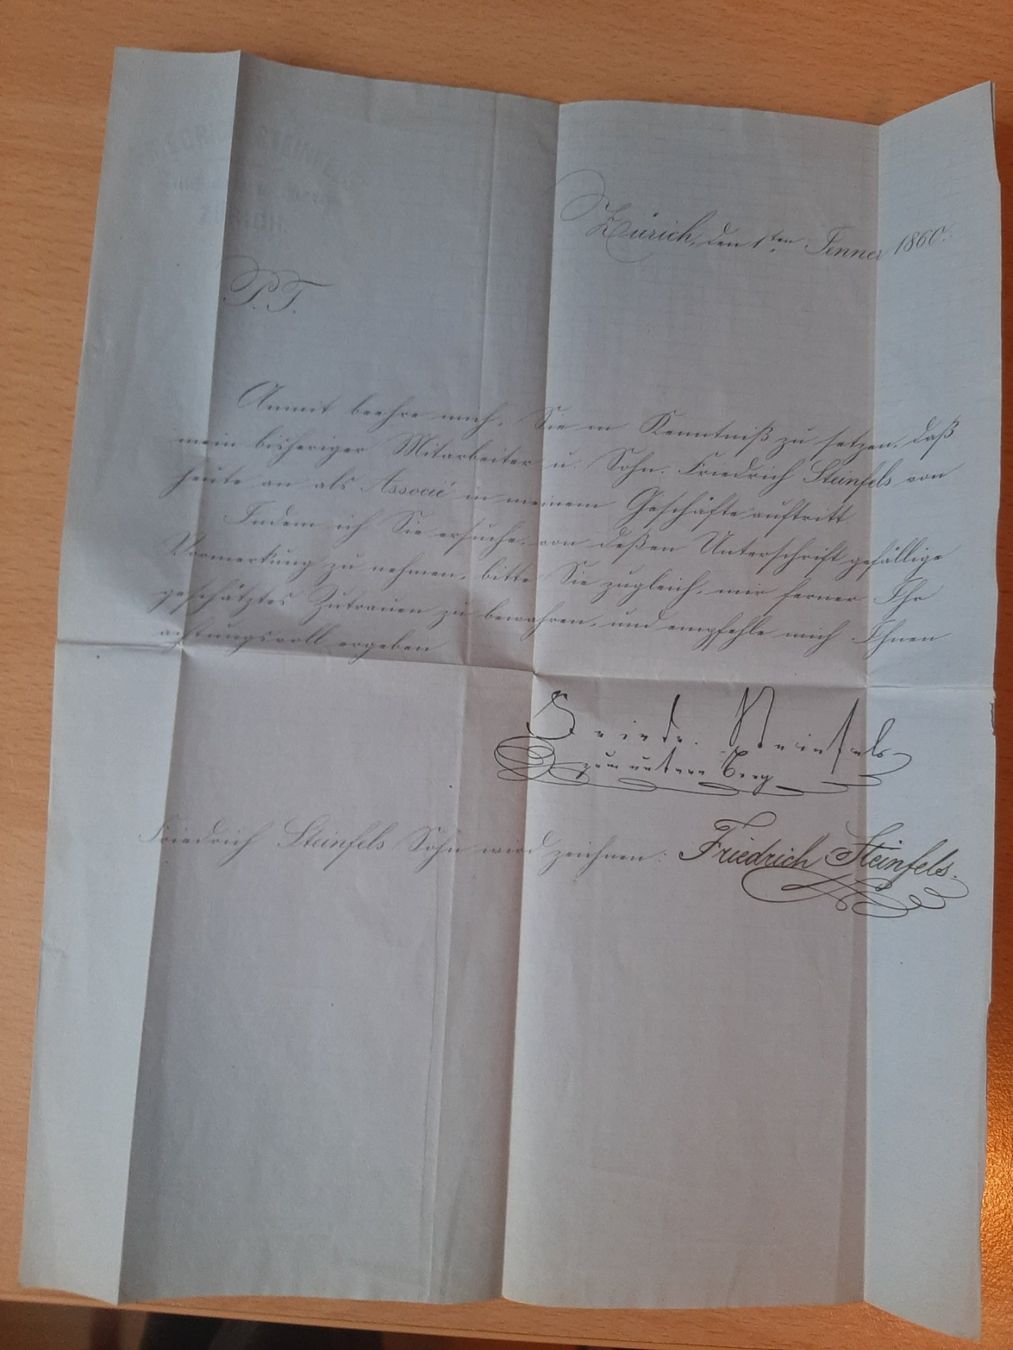 FRIEDRICH STEINFELS
ZÜRICH
Zürich, den 1ten Jenner 1860.
P. T.
Anmit beehre mich, Sie in Kenntniß zu setzen, daß
mein bisheriger Mitarbeiter u. Sohn, Friedrich Steinfels von
heute an als Associé in meinem Geschäfte auftritt.
Indem ich Sie ersuche, von deßen Unterschrift gefällige
Vormerkung zu nehmen, bitte Sie zugleich, mir ferner Ihr
geschätztes Zutrauen zu bewahren, und empfehle mich Ihnen
achtungsvoll ergeben
Friedr. Steinfels
zum untern Berg
Friedrich Steinfels Sohn wird zeichnen: Friedrich Steinfels.